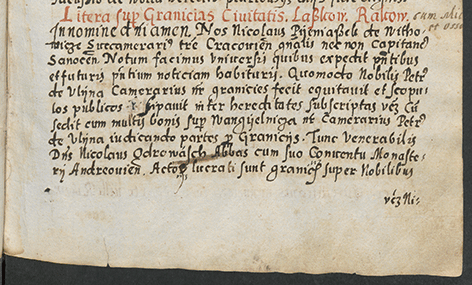 Litera sup Granicias Civitatis Laskow, Rakow.
In nomine d͞ni amen, Nos Nicolaus Pijeniaßek de Witho
Succamerarius tre Cracovien gnalis nec non Capitane
Sanocen Notum facimus universis quibus expedit p͞ntibus
et futuris p͞ntium noticiam habituris. Quomodo Nobilis Petr
de Vijna Camerarius nr granicies fecit equitavit et scopu
los publicos inter hereditates subscriptas vcz Cu
sedit cum multis bonis sup nr Camerarius Petr
de Vijna iudicando partes p Granicijs. Tunc Venerabilis
Dns Nicolaus Odrowasch Abbas cum suo Conventu Monaste
rij Andreovien. Actor lucrati sunt granicies super Nobilibus
vcz Ni-